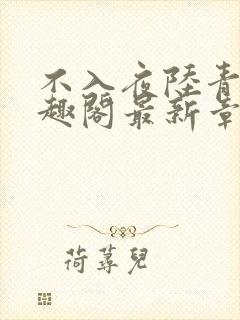 不入夜陸青
趣閣最新章
荷蕁兒